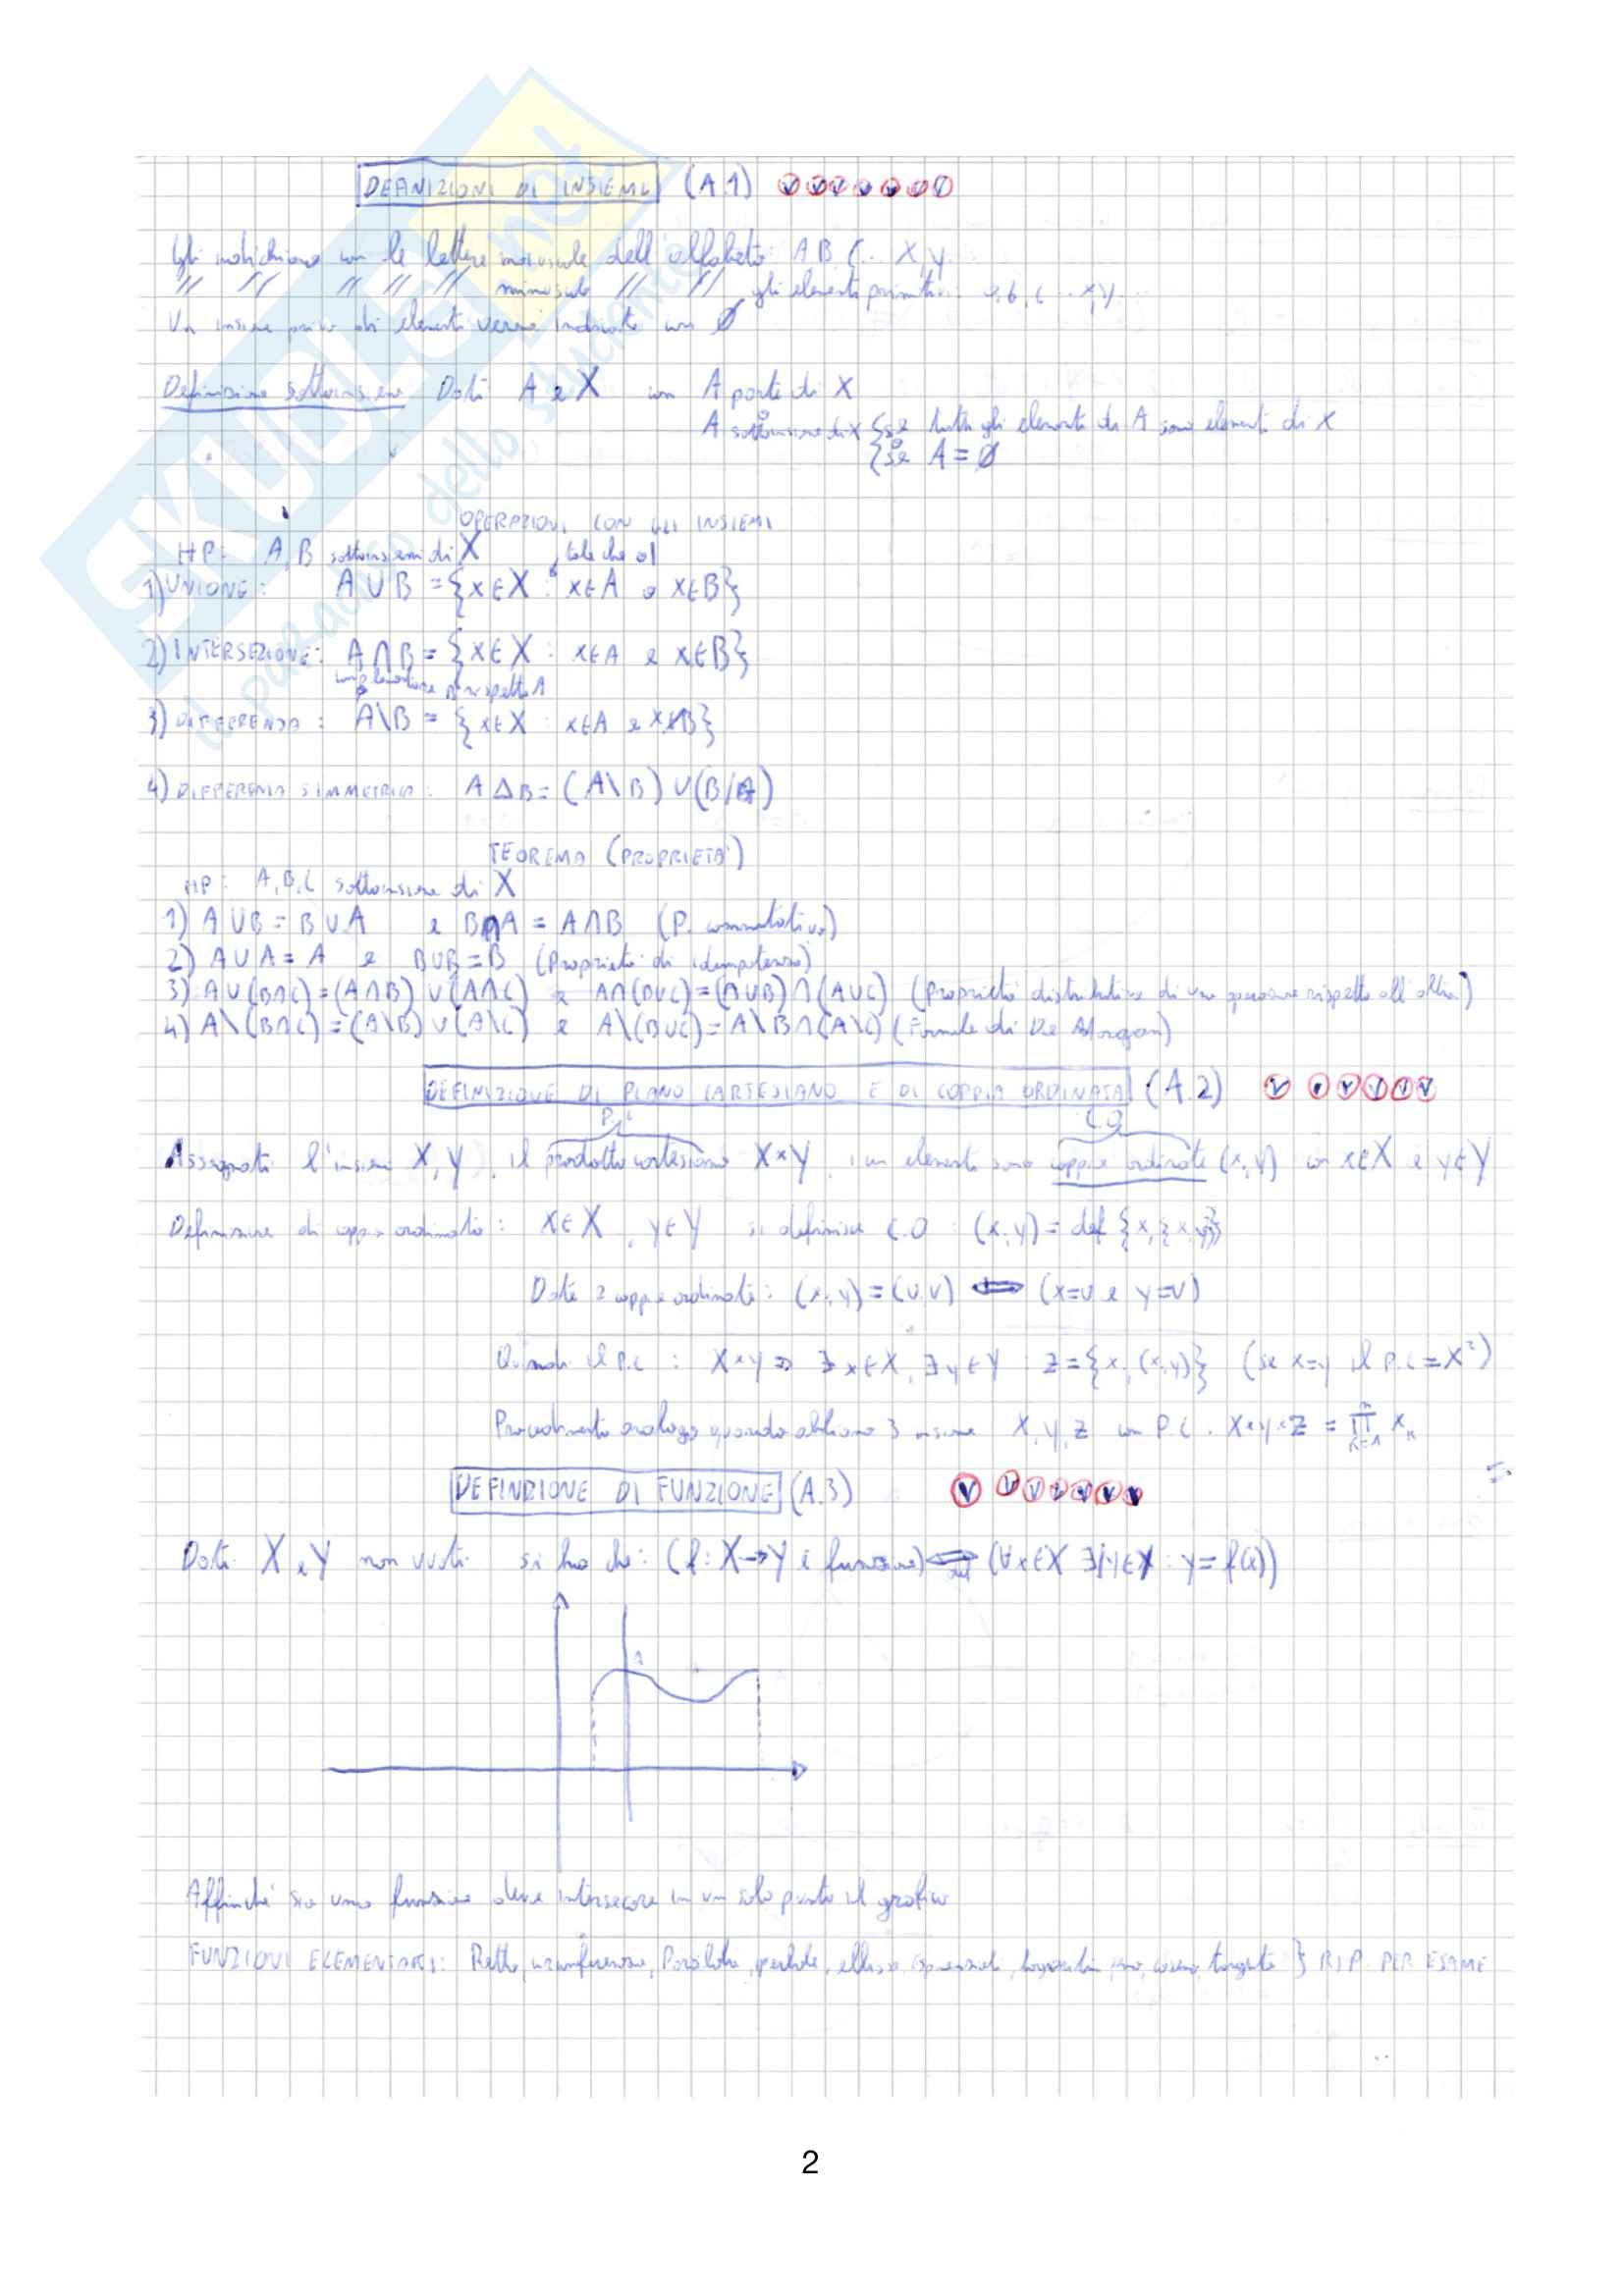 DEFINIZIONI DI INSIEME (A.1) V V V V V V V
Gli indichiamo con le lettere maiuscole dell'alfabeto: A B C... X, Y.
// // // // // minuscole // // gli elementi primitivi: a, b, c ... x, y...
Un insieme privo di elementi verrà indicato con Ø
Definizione sottoinsieme Dati A e X con A parte di X
A sottoinsieme di X { se tutti gli elementi di A sono elementi di X
{ se A = Ø
OPERAZIONI CON GLI INSIEMI
HP: A, B sottoinsiemi di X tale che
1) UNIONE: A ∪ B = {x ∈ X : x ∈ A o x ∈ B}
2) INTERSEZIONE: A ∩ B = {x ∈ X : x ∈ A e x ∈ B}
rispetto A
3) DIFFERENZA: A\B = {x ∈ X : x ∈ A e x ∉ B}
4) DIFFERENZA SIMMETRICA: A Δ B = (A\B) ∪ (B/A)
TEOREMA (PROPRIETA')
HP: A, B, C sottoinsieme di X
1) A ∪ B = B ∪ A e B ∩ A = A ∩ B (P. commutativa)
2) A ∪ A = A e B ∪ B = B (Proprietà di idempotenza)
3) A ∪ (B ∩ C) = (A ∩ B) ∪ (A ∩ C) e A ∩ (B ∪ C) = (A ∪ B) ∩ (A ∪ C) (Proprietà distributiva di una operazione rispetto all'altra)
4) A\(B ∩ C) = (A\B) ∪ (A\C) e A\(B ∪ C) = A\B ∩ (A\C) (Formule di De Morgan)
DEFINIZIONE DI PIANO CARTESIANO E DI COPPIA ORDINATA (A.2) V V V V V V
P.C C.O
Assegnati l'insiemi X, Y, il prodotto cartesiano X×Y, i cui elementi sono coppie ordinate (x, y) con x ∈ X e y ∈ Y
Definizione di coppia ordinata: x ∈ X, y ∈ Y si definisce C.O: (x, y) = def {x, {x, y}}
Date 2 coppie ordinate: (x, y) = (u, v) ⟺ (x = u e y = v)
Quindi il P.C: X×Y ⇒ ∃ x ∈ X, ∃ y ∈ Y : z = {x, (x, y)} (se x = y il P.C = X²)
Procedimento analogo quando abbiamo 3 insiemi X, Y, Z con P.C. X×Y×Z = ∏ Xₖ
DEFINIZIONE DI FUNZIONE (A.3) V V V V V V V
Dati X e Y non vuoti si ha che: (f: X→Y è funzione) ⟺ def (∀ x ∈ X ∃! y ∈ Y : y = f(x))
Affinché sia una funzione deve intersecare in un solo punto il grafico
FUNZIONI ELEMENTARI: Retta, circonferenza, Parabola, iperbole, ellisse, esponenziali, logaritmi, seno, coseno, tangente } RIP PER ESAME
2
SKUOLA.net
il paradiso dello studente